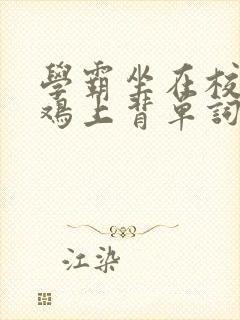 學霸坐在校
鸡上背单詞
江染